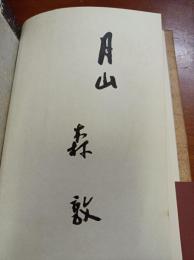 月山
森敦